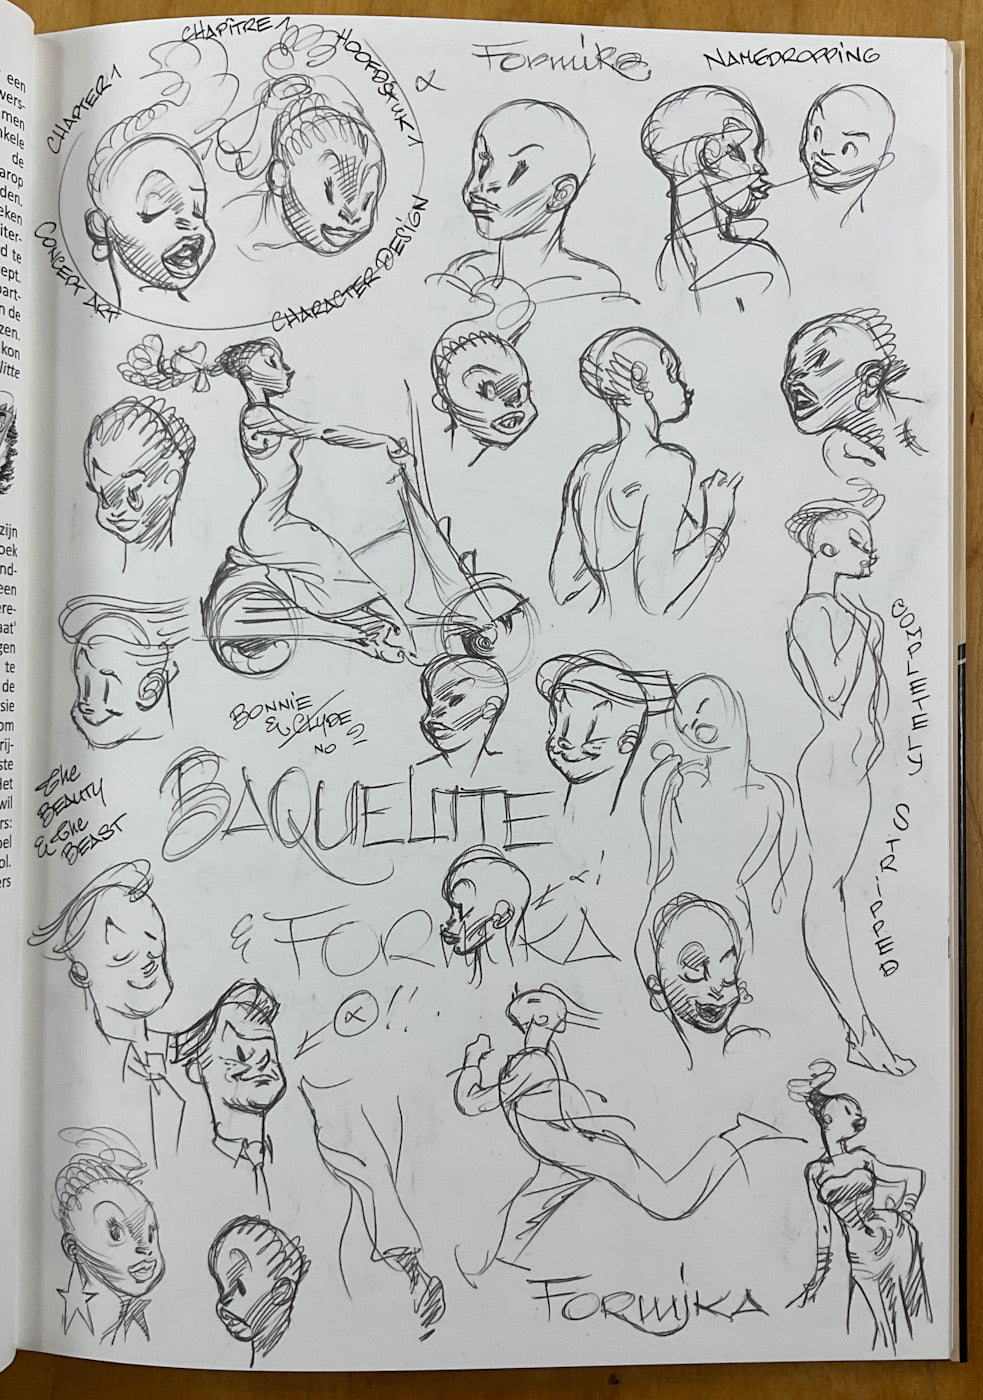 een
vers-
men
nkele
de
arop
den.
eken
iter-
rd te
ept.
part-
n de
zen.
kon
litte
zijn
oek
nd-
een
ere-
aat'
gen
te
de
sie
om
rij-
ste
Het
wil
rs:
oel
ol.
ers
CHAPTER 1
CHAPITRE 1
HOOFDSTUK 1
CONCEPT ART
CHARACTER DESIGN
α
Formika
NAMEDROPPING
COMPLETELY STRIPPED
BONNIE
& CLYDE ?
NO
The
BEAUTY
& The
BEAST
BAQUELITTE
& FORMIKA
α!
α!!
FORMIKA